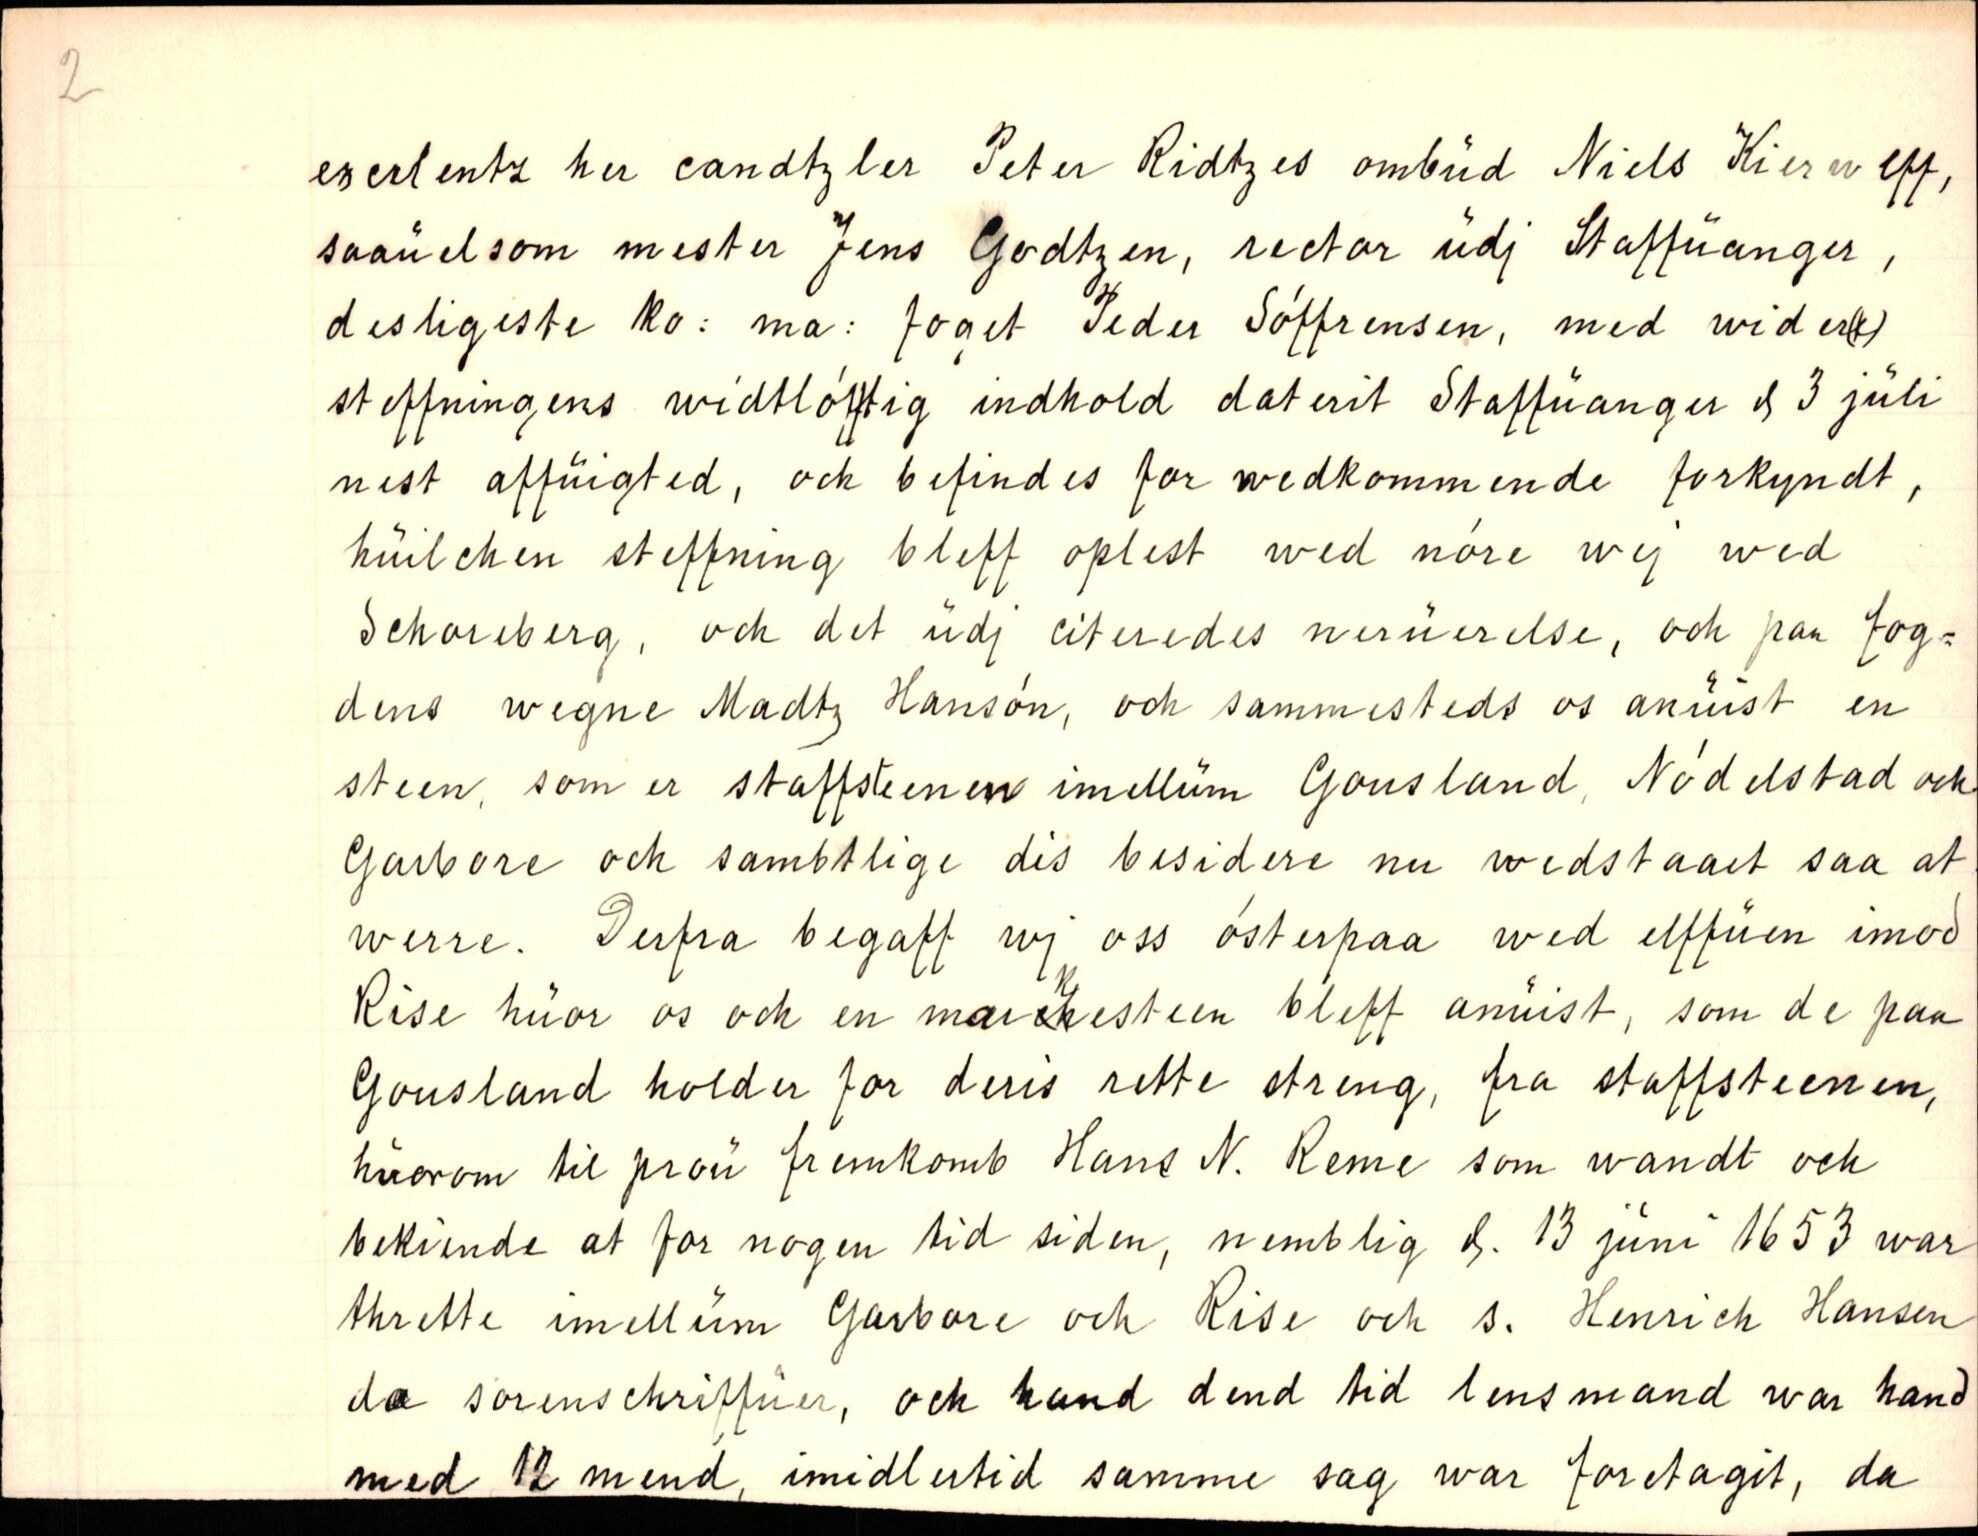 2
excerlentz her candtzler Peter Ridtzes ombüd Niels Kierweff,
saaüelsom mester Jens Godtzen, rector üdj Staffüanger,
desligeste ko: ma: foget Peder Sóffrensen, med wider(e)
steffningens widtlóftig indhold daterit Staffüanger d 3 jüli
nest affüigted, och befindes for wedkommende forkyndt,
hüilchen steffning bleff oplest wed nóre wej wed
Schoreberg, och det üdj citeredes nerüerelse, och paa fog=
dens wegne Madtz Hansón, och sammesteds os anüist en
steen, som er staffsteenen imellüm Gousland, Nódelstad och
Garbore och sambtlige dis besidere nu wedstaaet saa at
werre. Derfra begaff wj oss ósterpaa wed elffüen imod
Rise hüor os och en markesteen bleff anüist, som de paa
Gousland holder for deris rette streng, fra staffsteenen,
hüorom til proü fremkomb Hans N. Reme som wandt och
bekiende at for nogen tid siden, nemblig d. 13 jüni 1653 war
thrette imellüm Garbore och Rise och s. Henrich Hansen
da sorenschriffüer, och hand dend tid lensmand war hand
med 12 mend, imidlertid samme sag war foretagit, da